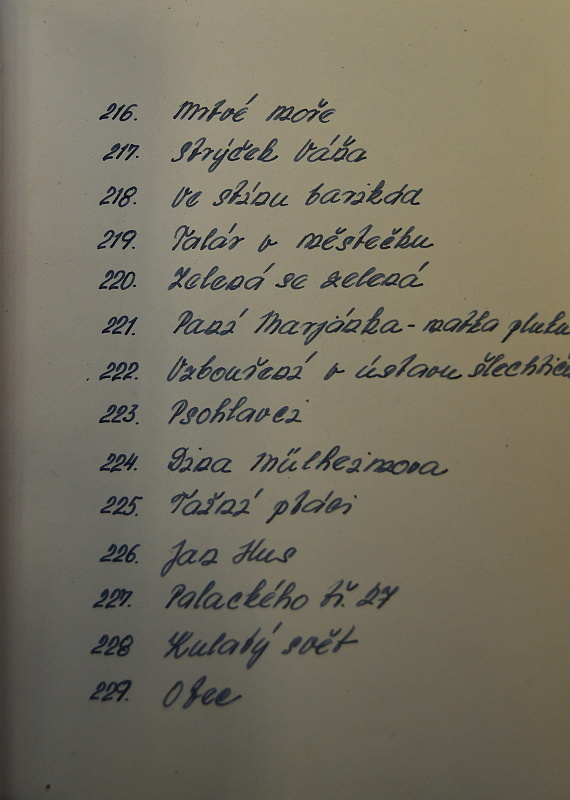 216. Mrtvé moře
217. Strýček Váňa
218. Ve stínu barikád
219. Talár v městečku
220. Zelená se zelená
221. Paní Marjánka - matka pluku
222. Vzbouření v ústavu šlechtičen
223. Psohlavci
224. Dina Mülheimova
225. Tažní ptáci
226. Jan Hus
227. Palackého tř. 27
228 Kulatý svět
229. Obec